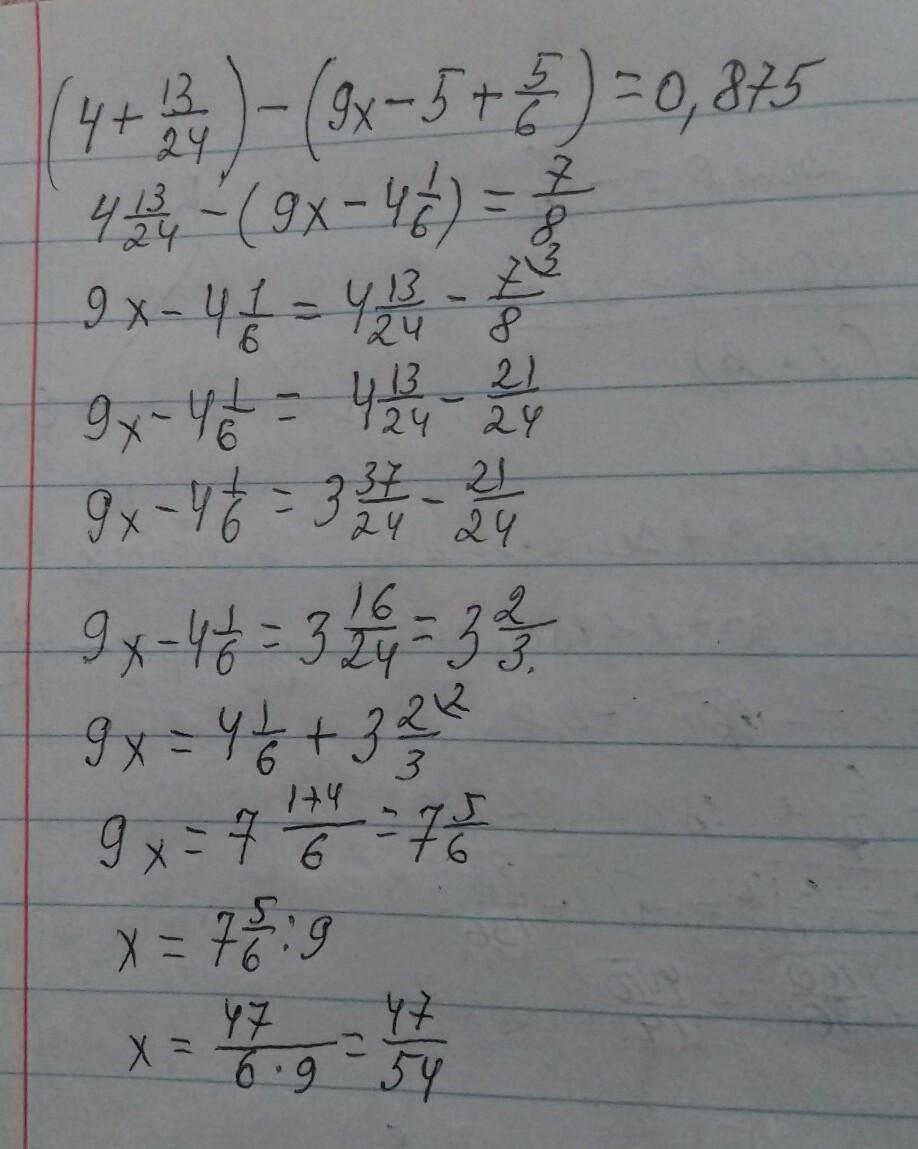 (4 + 13/24) - (9x - 5 + 5/6) = 0,875
4 13/24 - (9x - 4 1/6) = 7/8
9x - 4 1/6 = 4 13/24 - 7\3/8
9x - 4 1/6 = 4 13/24 - 21/24
9x - 4 1/6 = 3 37/24 - 21/24
9x - 4 1/6 = 3 16/24 = 3 2/3.
9x = 4 1/6 + 3 2\2/3
9x = 7 1+4/6 = 7 5/6
x = 7 5/6 : 9
x = 47/6·9 = 47/54